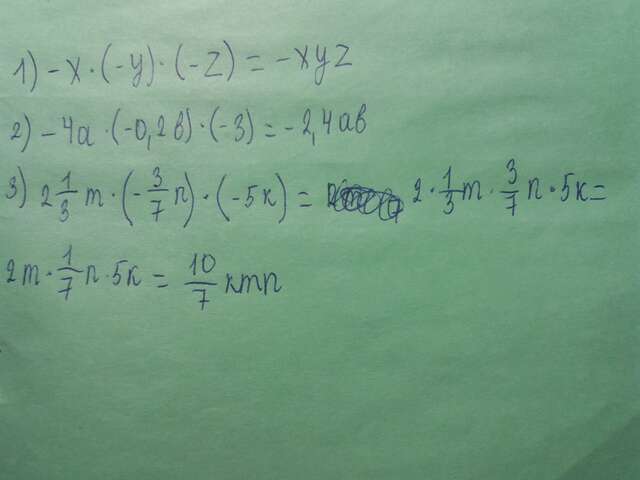 1) -x · (-y) · (-z) = -xyz
2) -4a · (-0,2в) · (-3) = -2,4aв
3) 2 1/3 m · (- 3/7 n) · (-5к) = 2 · 1/3 m · 3/7 n · 5к =
2m · 1/7 n · 5к = 10/7 кmn